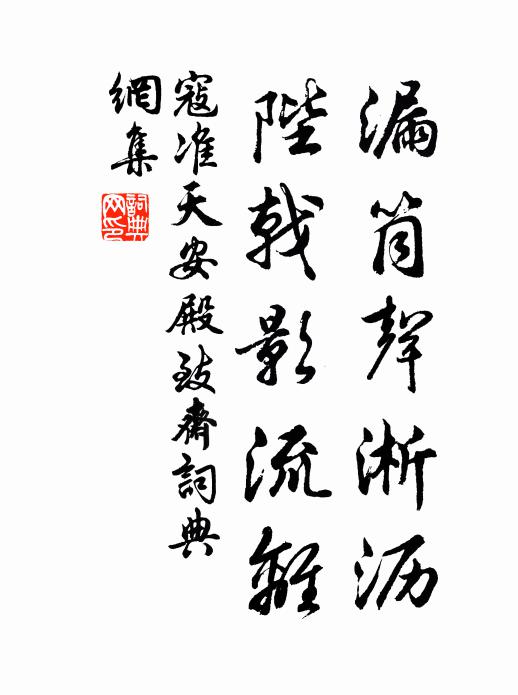 漏筒聲淅沥
陛戟影流離
寇准天安殿致齋詞典
網集
詞典網印